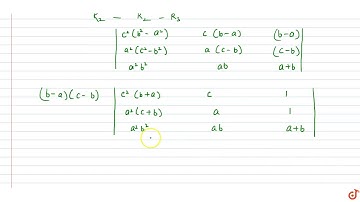 R₂ — R₂ - R₃
| c²(b²-a²) c(b-a) (b-a) |
| a²(c²-b²) a(c-b) (c-b) |
| a²b² ab a+b |
(b-a)(c-b) | c²(b+a) c 1 |
| a²(c+b) a 1 |
| a²b² ab a+b |